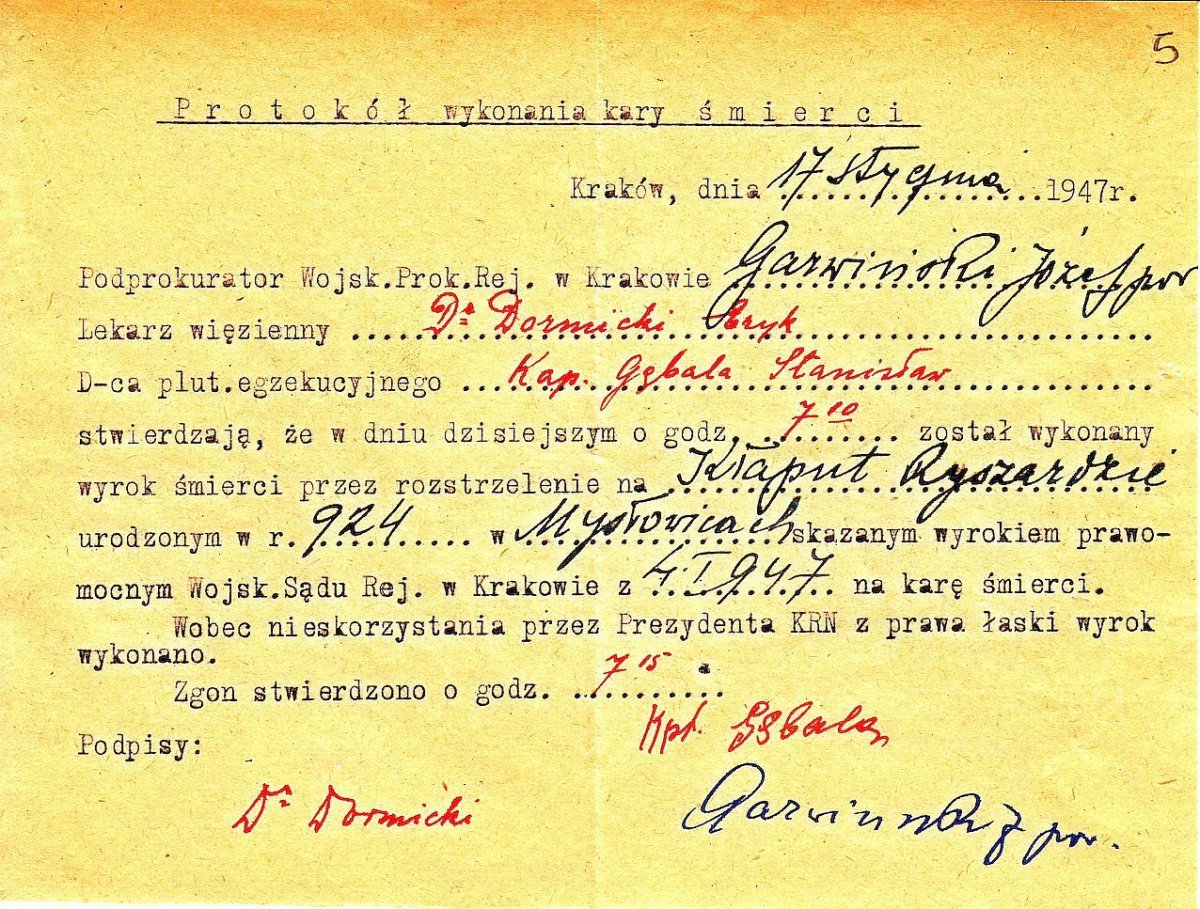 5
Protokół wykonania kary śmierci
Kraków, dnia 17 stycznia 1947r.
Podprokurator Wojsk.Prok.Rej. w Krakowie Garwiński Józef por
Lekarz więzienny Dr Dormicki Eryk
D-ca plut.egzekucyjnego Kap. Gębala Stanisław
stwierdzają, że w dniu dzisiejszym o godz. 7 10 został wykonany
wyrok śmierci przez rozstrzelenie na Kłaput Ryszardzie
urodzonym w r. 924 w Mysłowicach skazanym wyrokiem prawo-
mocnym Wojsk.Sądu Rej. w Krakowie z 4.I 947 na karę śmierci.
Wobec nieskorzystania przez Prezydenta KRN z prawa łaski wyrok
wykonano.
Zgon stwierdzono o godz. 7 15
Kpt. Gębala
Podpisy:
Dr Dormicki
Garwiński J por.